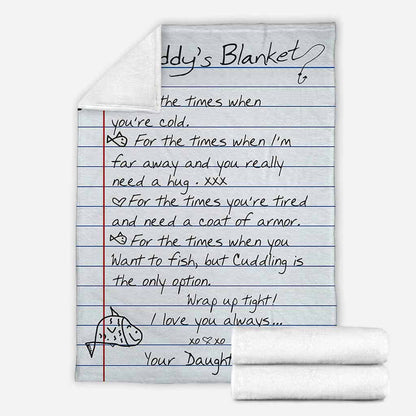 ddy's Blanket
the times when
you're cold.
For the times when I'm
far away and you really
need a hug. xxx
For the times you're tired
and need a coat of armor.
For the times when you
Want to fish, but Cuddling is
the only option.
Wrap up tight!
I love you always...
xo♡xo
Your Daught